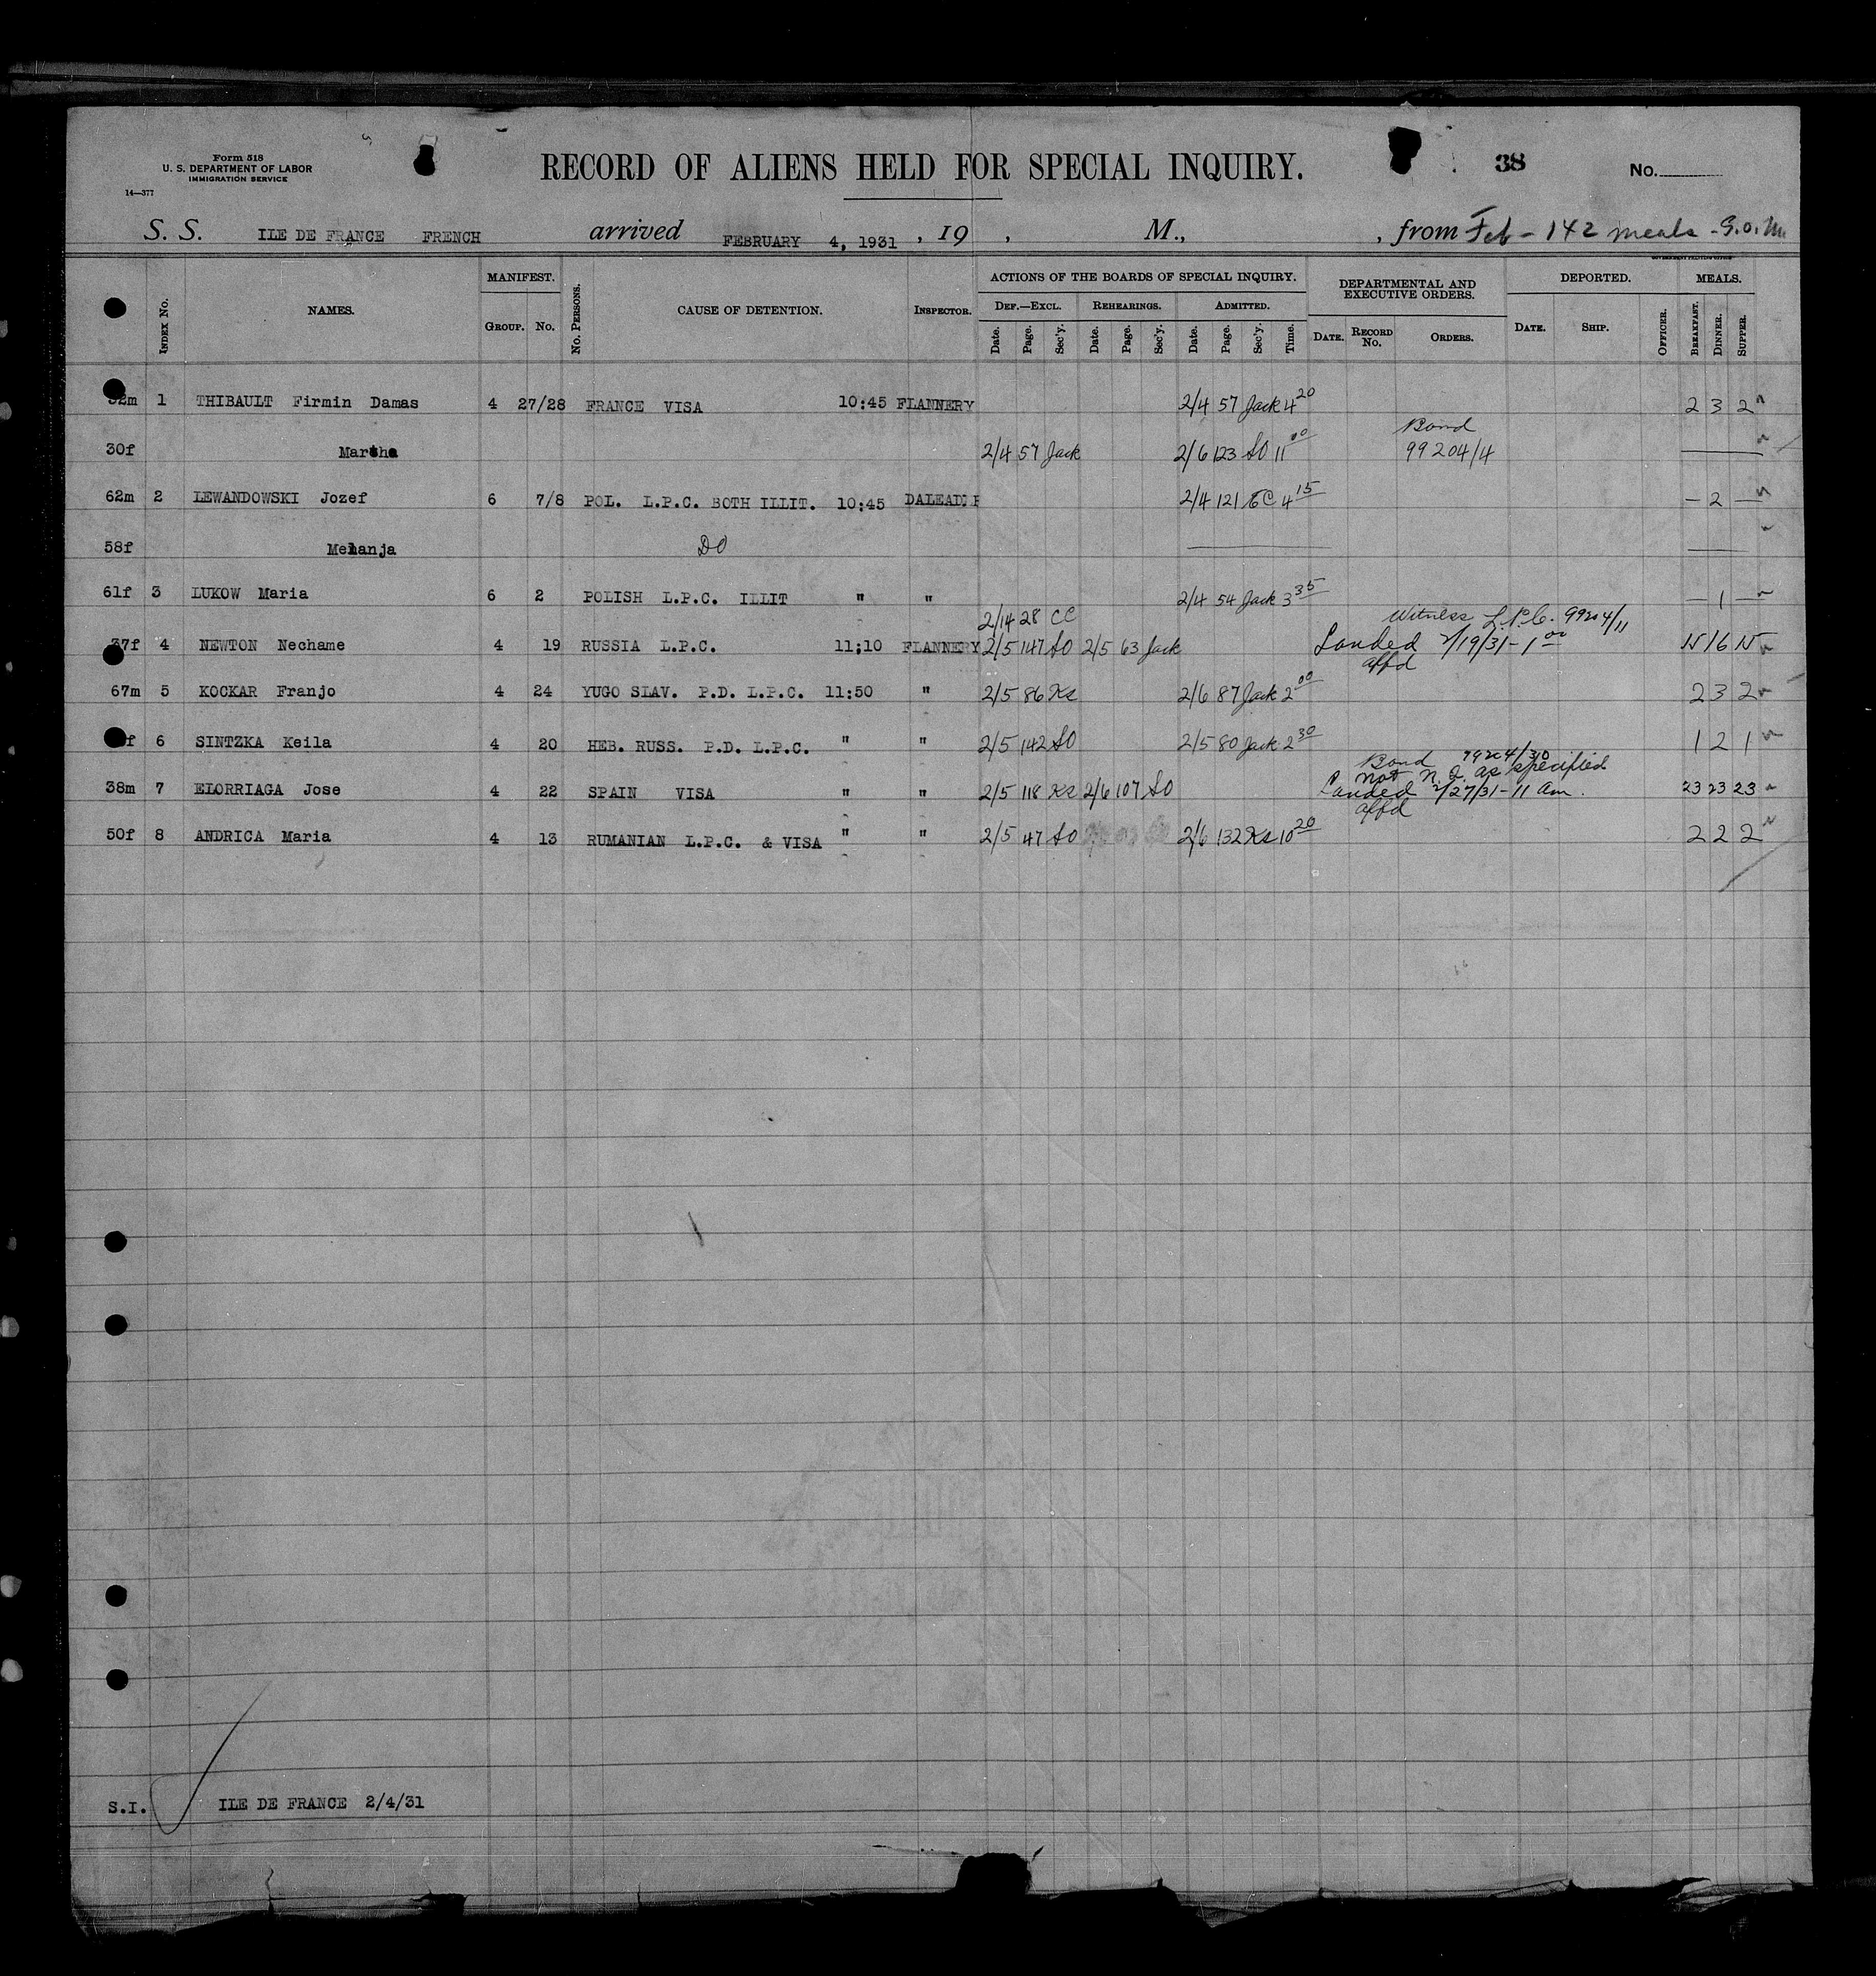 Form 518
U. S. DEPARTMENT OF LABOR
IMMIGRATION SERVICE
14—377
RECORD OF ALIENS HELD FOR SPECIAL INQUIRY.
38
No.
S. S. ILE DE FRANCE FRENCH arrived FEBRUARY 4, 1931 , 19 , M., , from Feb - 142 meals - S.O.M.
INDEX No. NAMES. MANIFEST. No. PERSONS. CAUSE OF DETENTION. INSPECTOR. ACTIONS OF THE BOARDS OF SPECIAL INQUIRY. DEPARTMENTAL AND EXECUTIVE ORDERS. DEPORTED. MEALS.
GROUP. No. DEF.—EXCL. REHEARINGS. ADMITTED.
Date. Page. Sec'y. Date. Page. Sec'y. Date. Page. Sec'y. Time. DATE. RECORD No. ORDERS. DATE. SHIP. OFFICER. BREAKFAST. DINNER. SUPPER.
32m 1 THIBAULT Firmin Damas 4 27/28 FRANCE VISA 10:45 FLANNERY 2/4 57 Jack 4 20 2 3 2
Bond
30f Martha 2/4 57 Jack 2/6 123 SO 11 00 99204/4
62m 2 LEWANDOWSKI Jozef 6 7/8 POL. L.P.C. BOTH ILLIT. 10:45 2/4 121 EC 4 15 — 2 —
58f Melanja DO
61f 3 LUKOW Maria 6 2 POLISH L.P.C. ILLIT " " 2/4 54 Jack 3 35 — 1 —
2/14 28 CC Witness L.P.C. 99204/11
37f 4 NEWTON Nechame 4 19 RUSSIA L.P.C. 11:10 FLANNERY 2/5 147 SO 2/5 63 Jack Landed 2/19/31 - 1 00 15 16 15
affd
67m 5 KOCKAR Franjo 4 24 YUGO SLAV. P.D. L.P.C. 11:50 " 2/5 86 Ks 2/6 87 Jack 2 00 2 3 2
f 6 SINTZKA Keila 4 20 HEB. RUSS. P.D. L.P.C. " " 2/5 142 SO 2/5 80 Jack 2 30 1 2 1
Bond 99204/30
not N. Q. as specified
38m 7 ELORRIAGA Jose 4 22 SPAIN VISA " " 2/5 118 Ks 2/6 107 SO Landed 2/27/31 - 11 am. 23 23 23
affd
50f 8 ANDRICA Maria 4 13 RUMANIAN L.P.C. & VISA " " 2/5 47 SO 2/6 132 Ks 10 20 2 2 2
S.I. ILE DE FRANCE 2/4/31